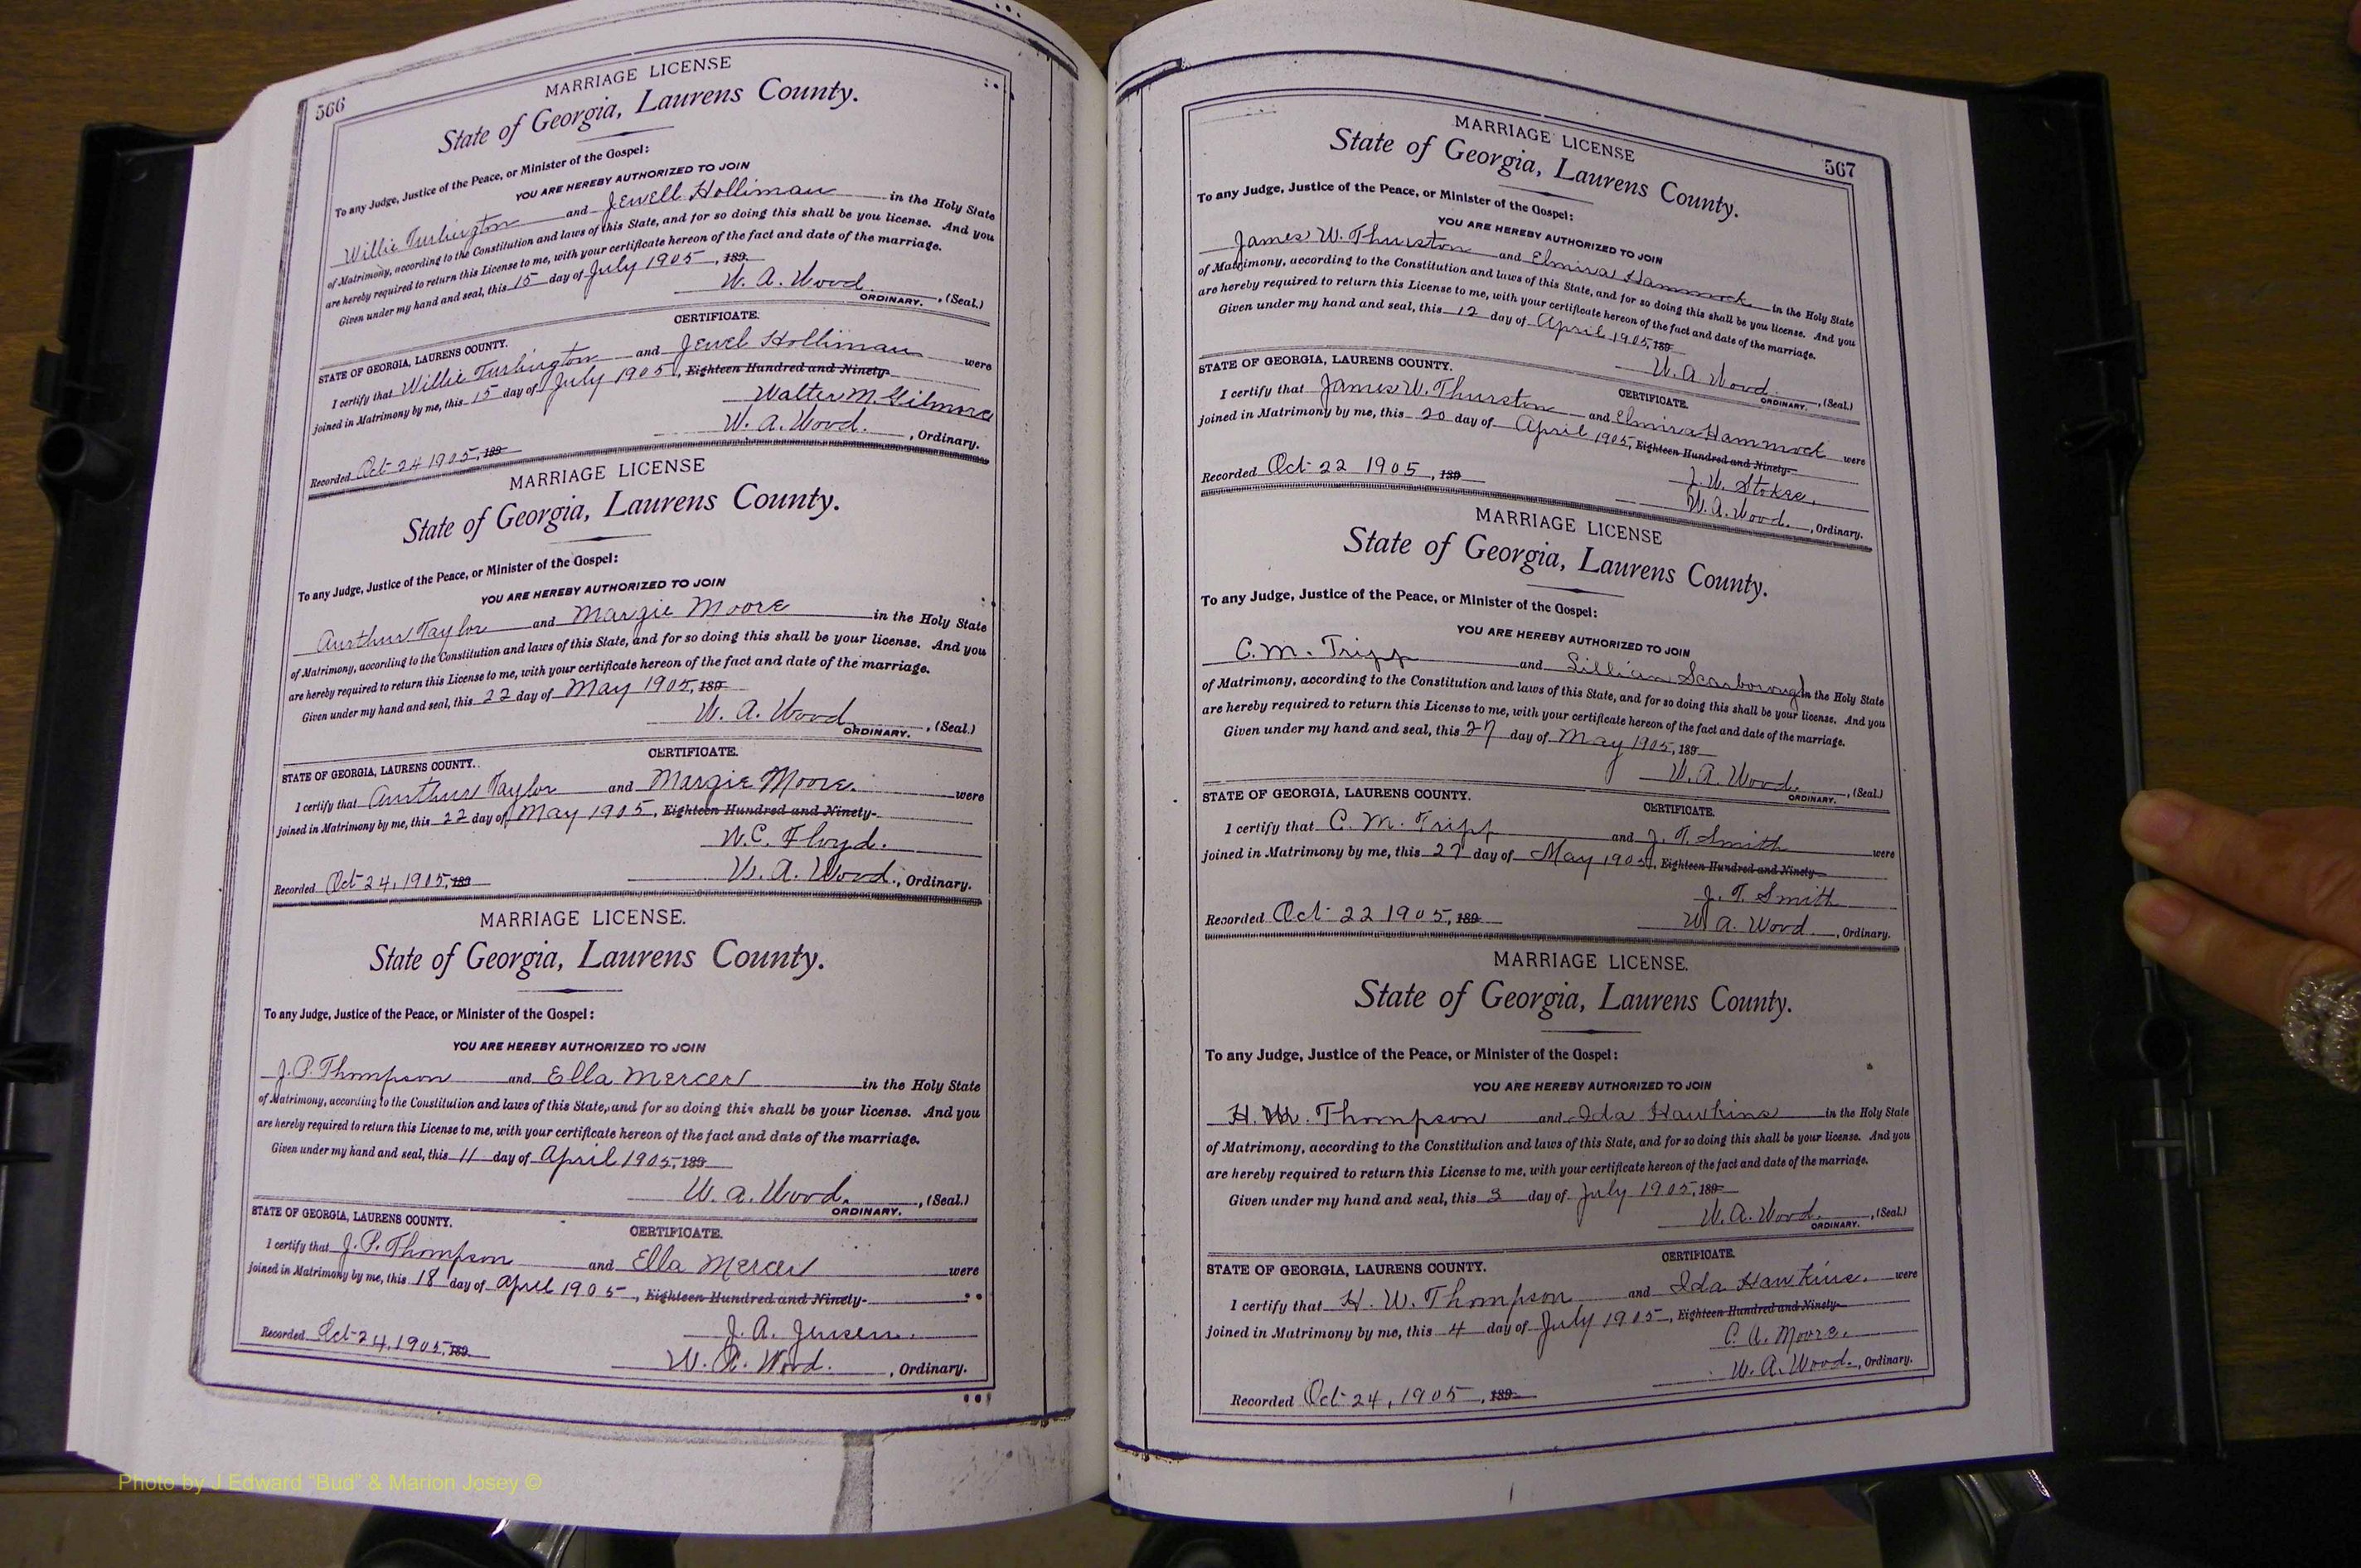 566
MARRIAGE LICENSE
State of Georgia, Laurens County.
To any Judge, Justice of the Peace, or Minister of the Gospel:
YOU ARE HEREBY AUTHORIZED TO JOIN
Willie Turlington and Jewell Holliman in the Holy State
of Matrimony, according to the Constitution and laws of this State, and for so doing this shall be you license. And you
are hereby required to return this License to me, with your certificate hereon of the fact and date of the marriage.
Given under my hand and seal, this 15 day of July 1905, 189
W. A. Wood. , (Seal.)
ORDINARY.
CERTIFICATE.
STATE OF GEORGIA, LAURENS COUNTY.
I certify that Willie Turlington and Jewel Holliman were
joined in Matrimony by me, this 15 day of July 1905, Eighteen Hundred and Ninety-
Walter M. Gilmore
W. A. Wood. , Ordinary.
Recorded Oct 24 1905, 189
MARRIAGE LICENSE
State of Georgia, Laurens County.
To any Judge, Justice of the Peace, or Minister of the Gospel:
YOU ARE HEREBY AUTHORIZED TO JOIN
Aurthur Taylor and Margie Moore in the Holy State
of Matrimony, according to the Constitution and laws of this State, and for so doing this shall be your license. And you
are hereby required to return this License to me, with your certificate hereon of the fact and date of the marriage.
Given under my hand and seal, this 22 day of May 1905, 189
W. A. Wood , (Seal.)
ORDINARY.
CERTIFICATE.
STATE OF GEORGIA, LAURENS COUNTY.
I certify that Aurthur Taylor and Margie Moore. were
joined in Matrimony by me, this 22 day of May 1905, Eighteen Hundred and Ninety-
W. C. Floyd.
W. A. Wood. , Ordinary.
Recorded Oct 24, 1905, 189
MARRIAGE LICENSE.
State of Georgia, Laurens County.
To any Judge, Justice of the Peace, or Minister of the Gospel:
YOU ARE HEREBY AUTHORIZED TO JOIN
J. P. Thompson and Ella Mercer in the Holy State
of Matrimony, according to the Constitution and laws of this State, and for so doing this shall be your license. And you
are hereby required to return this License to me, with your certificate hereon of the fact and date of the marriage.
Given under my hand and seal, this 11 day of April 1905, 189
W. A. Wood. , (Seal.)
ORDINARY.
CERTIFICATE.
STATE OF GEORGIA, LAURENS COUNTY.
I certify that J. P. Thompson and Ella Mercer were
joined in Matrimony by me, this 18 day of April 1905, Eighteen Hundred and Ninety-
J. A.
W. A. Wood. , Ordinary.
Recorded Oct 24, 1905, 189
567
MARRIAGE LICENSE
State of Georgia, Laurens County.
To any Judge, Justice of the Peace, or Minister of the Gospel:
YOU ARE HEREBY AUTHORIZED TO JOIN
James W. Thurston and Elmira Hammock in the Holy State
of Matrimony, according to the Constitution and laws of this State, and for so doing this shall be you license. And you
are hereby required to return this License to me, with your certificate hereon of the fact and date of the marriage.
Given under my hand and seal, this 12 day of April 1905, 189
W. A. Wood. , (Seal.)
ORDINARY.
CERTIFICATE.
STATE OF GEORGIA, LAURENS COUNTY.
I certify that James W. Thurston and Elmira Hammock were
joined in Matrimony by me, this 20 day of April 1905, Eighteen Hundred and Ninety-
W. Stokes.
W. A. Wood. , Ordinary.
Recorded Oct 22 1905, 189
MARRIAGE LICENSE
State of Georgia, Laurens County.
To any Judge, Justice of the Peace, or Minister of the Gospel:
YOU ARE HEREBY AUTHORIZED TO JOIN
C. M. Tripp and Lillian Scarborough in the Holy State
of Matrimony, according to the Constitution and laws of this State, and for so doing this shall be your license. And you
are hereby required to return this License to me, with your certificate hereon of the fact and date of the marriage.
Given under my hand and seal, this 27 day of May 1905, 189
W. A. Wood. , (Seal.)
ORDINARY.
CERTIFICATE.
STATE OF GEORGIA, LAURENS COUNTY.
I certify that C. M. Tripp and J. T. Smith were
joined in Matrimony by me, this 27 day of May 1905, Eighteen Hundred and Ninety-
J. T. Smith
W. A. Wood. , Ordinary.
Recorded Oct 22 1905, 189
MARRIAGE LICENSE.
State of Georgia, Laurens County.
To any Judge, Justice of the Peace, or Minister of the Gospel:
YOU ARE HEREBY AUTHORIZED TO JOIN
H. W. Thompson and Ida Hawkins in the Holy State
of Matrimony, according to the Constitution and laws of this State, and for so doing this shall be your license. And you
are hereby required to return this License to me, with your certificate hereon of the fact and date of the marriage.
Given under my hand and seal, this 3 day of July 1905, 189
W. A. Wood. , (Seal.)
ORDINARY.
CERTIFICATE.
STATE OF GEORGIA, LAURENS COUNTY.
I certify that H. W. Thompson and Ida Hawkins. were
joined in Matrimony by me, this 4 day of July 1905, Eighteen Hundred and Ninety-
C. A. Moore.
W. A. Wood. , Ordinary.
Recorded Oct 24, 1905, 189
Photo by J Edward "Bud" & Marion Josey ©